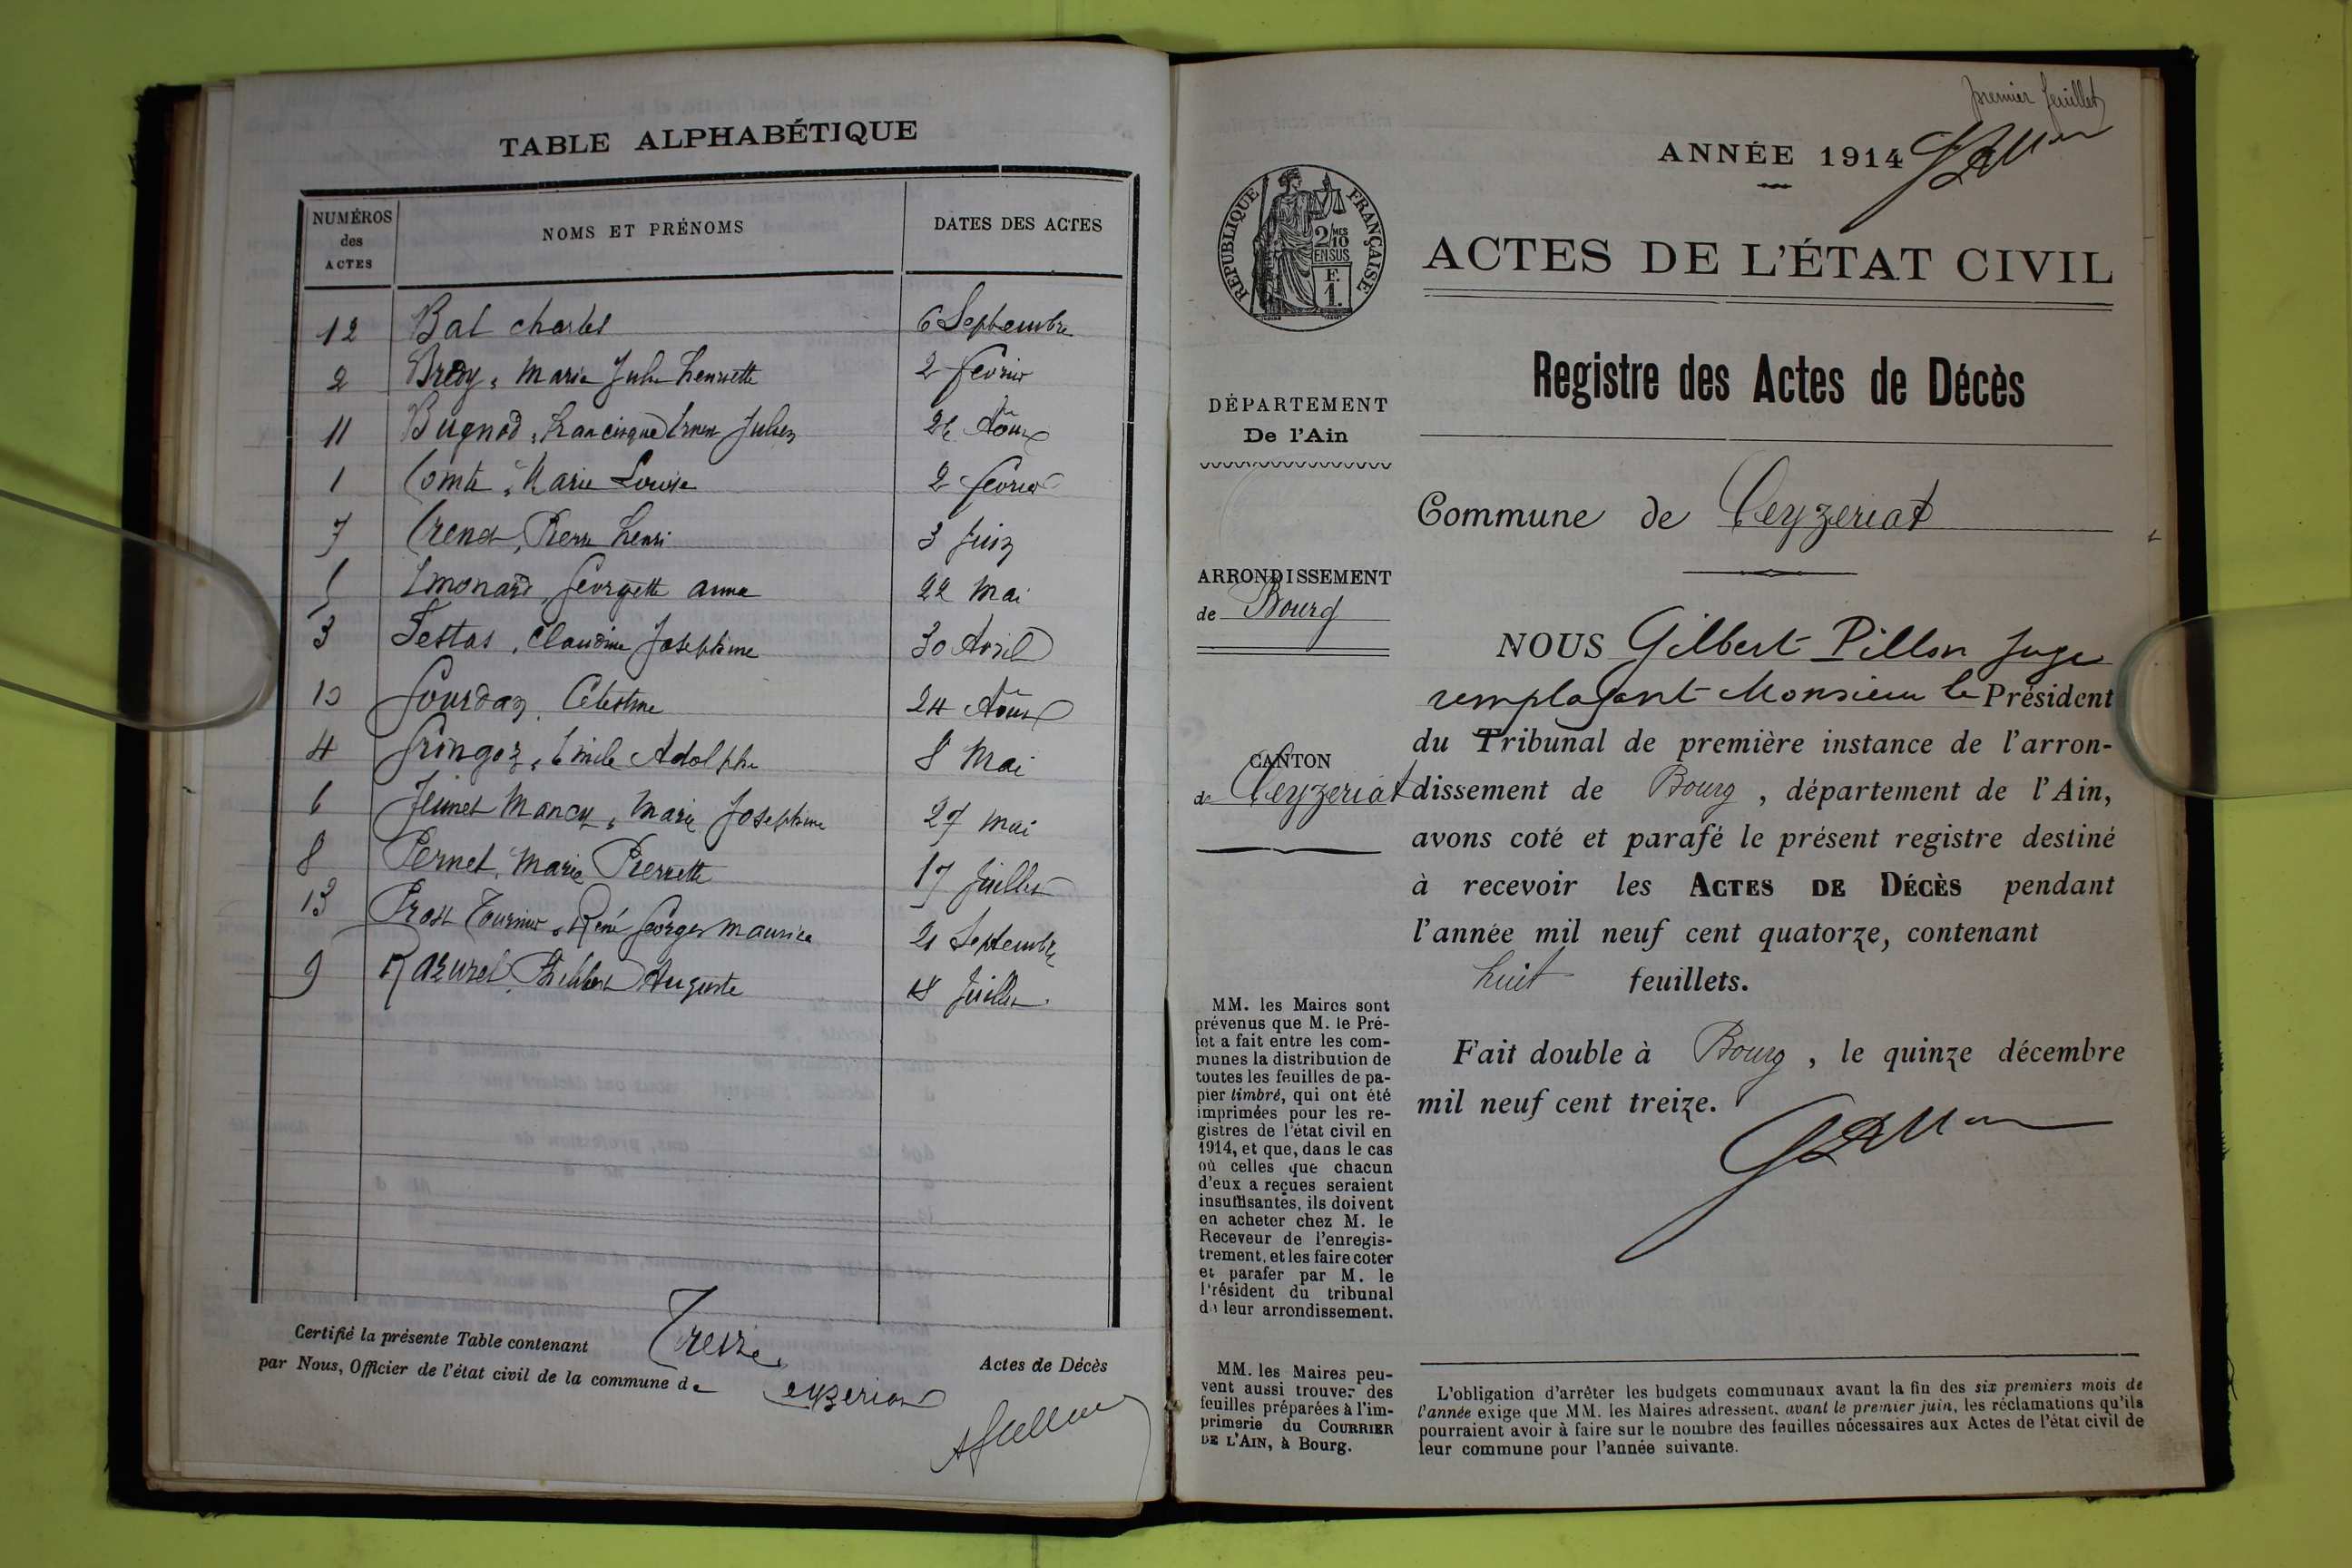 TABLE ALPHABÉTIQUE
NUMÉROS des ACTES
NOMS ET PRÉNOMS
DATES DES ACTES
12 Bal Charles 6 Septembre
2 Brédy, Marie Julie Henriette 2 février
11 Bugnod, Francisque Julien Août
1 Comte, Marie Louise 2 février
7 Crenet, Pierre Henri 3 Juin
5 Emonard, Georgette Anna 22 Mai
3 Festas, Claudine Joséphine 30 Avril
10 Gourdan, Célestine 24 Août
4 Gringoz, Emile Adolphe 8 Mai
6 Jeunet Mancy, Marie Joséphine 27 mai
8 Pernet, Marie Pierrette 17 Juillet
13 Prost Tournier, René Georges Maurice 21 Septembre
9 Razurel, Auguste 18 Juillet
Certifié la présente Table contenant Treize Actes de Décès
par Nous, Officier de l'état civil de la commune de Ceyzeriat
premier feuillet
ANNÉE 1914
ACTES DE L'ÉTAT CIVIL
Registre des Actes de Décès
RÉPUBLIQUE FRANÇAISE
2/10 MES
EN SUS
F.
1.
DÉPARTEMENT
De l'Ain
ARRONDISSEMENT
de Bourg
CANTON
de Ceyzeriat
MM. les Maires sont
prévenus que M. le Pré-
fet a fait entre les com-
munes la distribution de
toutes les feuilles de pa-
pier timbré, qui ont été
imprimées pour les re-
gistres de l'état civil en
1914, et que, dans le cas
où celles que chacun
d'eux a reçues seraient
insuffisantes, ils doivent
en acheter chez M. le
Receveur de l'enregis-
trement, et les faire coter
et parafer par M. le
Président du tribunal
de leur arrondissement.
MM. les Maires peu-
vent aussi trouver des
feuilles préparées à l'im-
primerie du COURRIER
DE L'AIN, à Bourg.
Commune de Ceyzeriat
NOUS Gilbert Pillon Juge
remplaçant Monsieur le Président
du Tribunal de première instance de l'arron-
dissement de Bourg, département de l'Ain,
avons coté et parafé le présent registre destiné
à recevoir les ACTES DE DÉCÈS pendant
l'année mil neuf cent quatorze, contenant
huit feuillets.
Fait double à Bourg, le quinze décembre
mil neuf cent treize.
L'obligation d'arrêter les budgets communaux avant la fin des six premiers mois de
l'année exige que MM. les Maires adressent, avant le premier juin, les réclamations qu'ils
pourraient avoir à faire sur le nombre des feuilles nécessaires aux Actes de l'état civil de
leur commune pour l'année suivante.